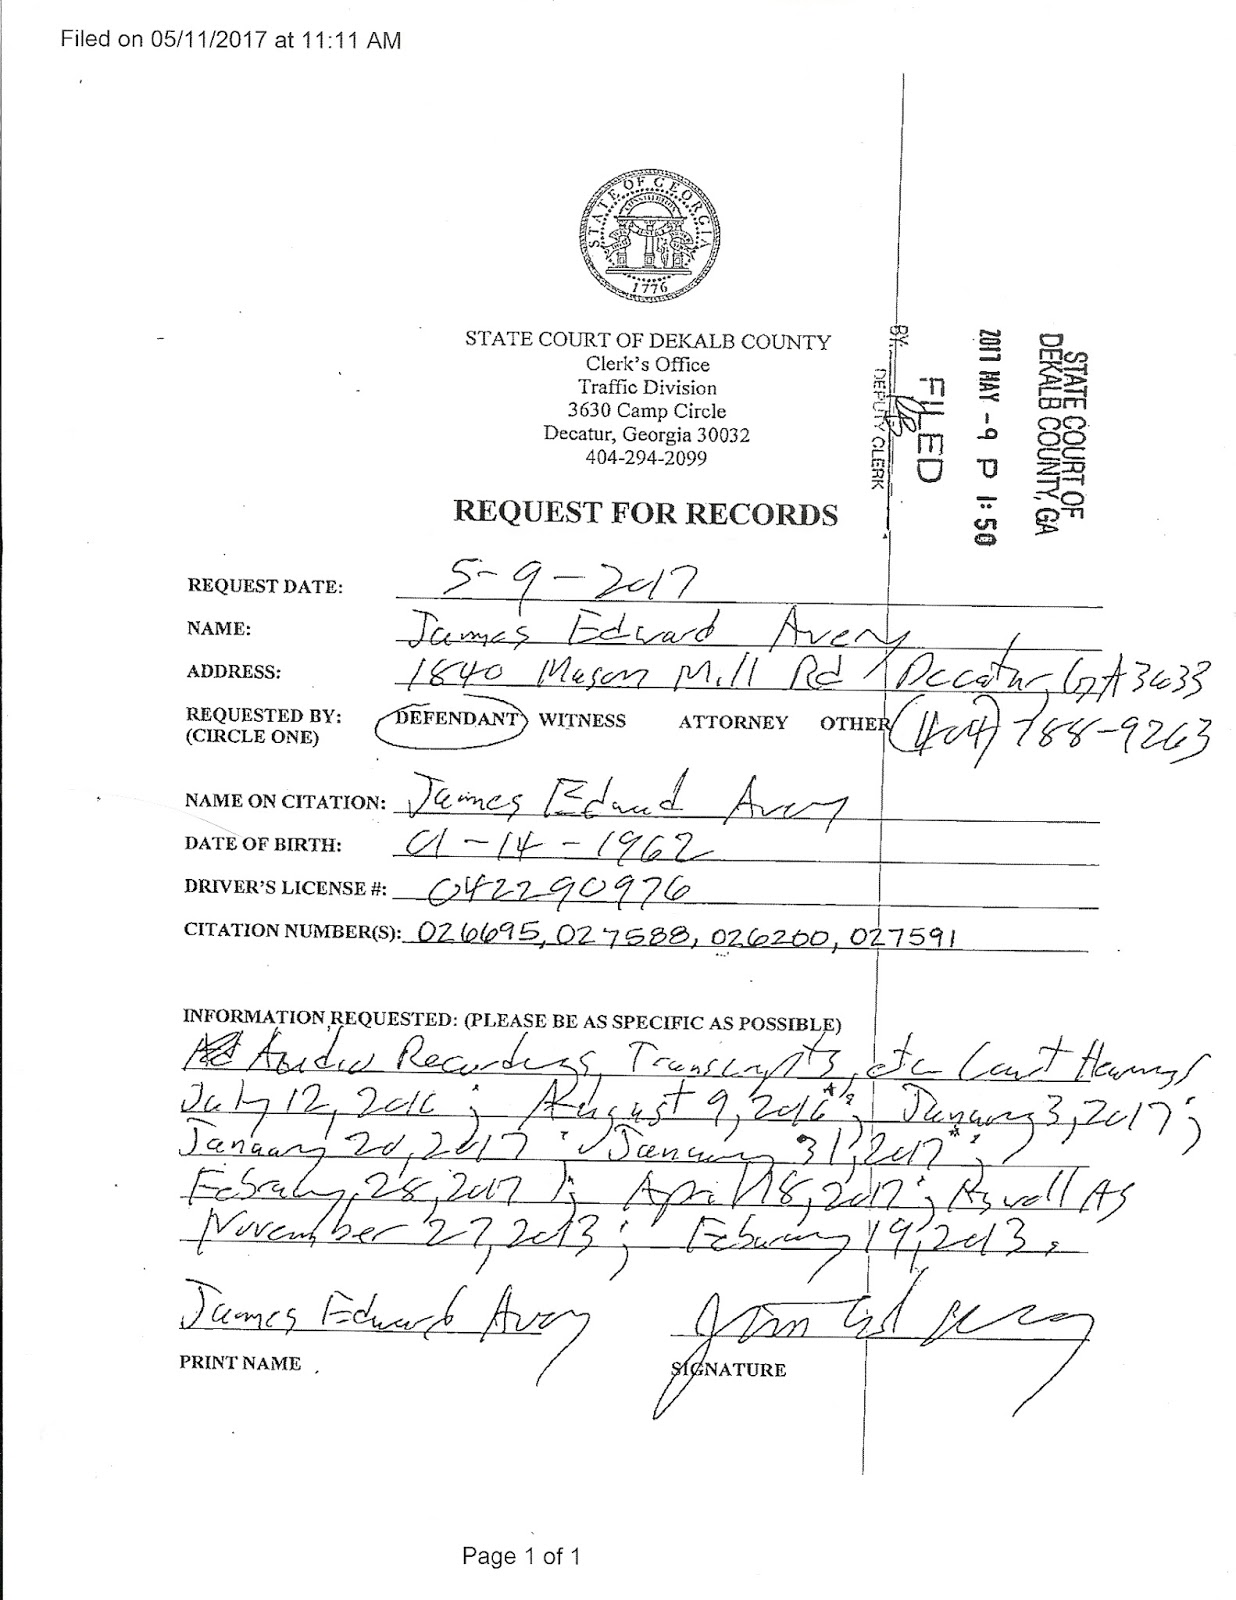 Filed on 05/11/2017 at 11:11 AM
STATE OF GEORGIA
CONSTITUTION
1776
STATE COURT OF DEKALB COUNTY
Clerk's Office
Traffic Division
3630 Camp Circle
Decatur, Georgia 30032
404-294-2099
STATE COURT OF
DEKALB COUNTY, GA
2017 MAY -9 P 1:50
FILED
BY
DEPUTY CLERK
REQUEST FOR RECORDS
REQUEST DATE: 5-9-2017
NAME: James Edward Avery
ADDRESS: 1840 Mason Mill Rd / Decatur, GA 30033
REQUESTED BY: DEFENDANT WITNESS ATTORNEY OTHER (404) 788-9263
(CIRCLE ONE)
NAME ON CITATION: James Edward Avery
DATE OF BIRTH: 01-14-1962
DRIVER'S LICENSE #: 042290976
CITATION NUMBER(S): 026695, 027588, 026200, 027591
INFORMATION REQUESTED: (PLEASE BE AS SPECIFIC AS POSSIBLE)
Audio Recordings, Transcripts, etc Court Hearings
July 12, 2016 ; August 9, 2016* ; January 3, 2017 ;
January 20, 2017 ; January 31, 2017* ;
February 28, 2017 ; April 18, 2017 ; As well As
November 27, 2013 ; February 19, 2013.
James Edward Avery
PRINT NAME
SIGNATURE
Page 1 of 1